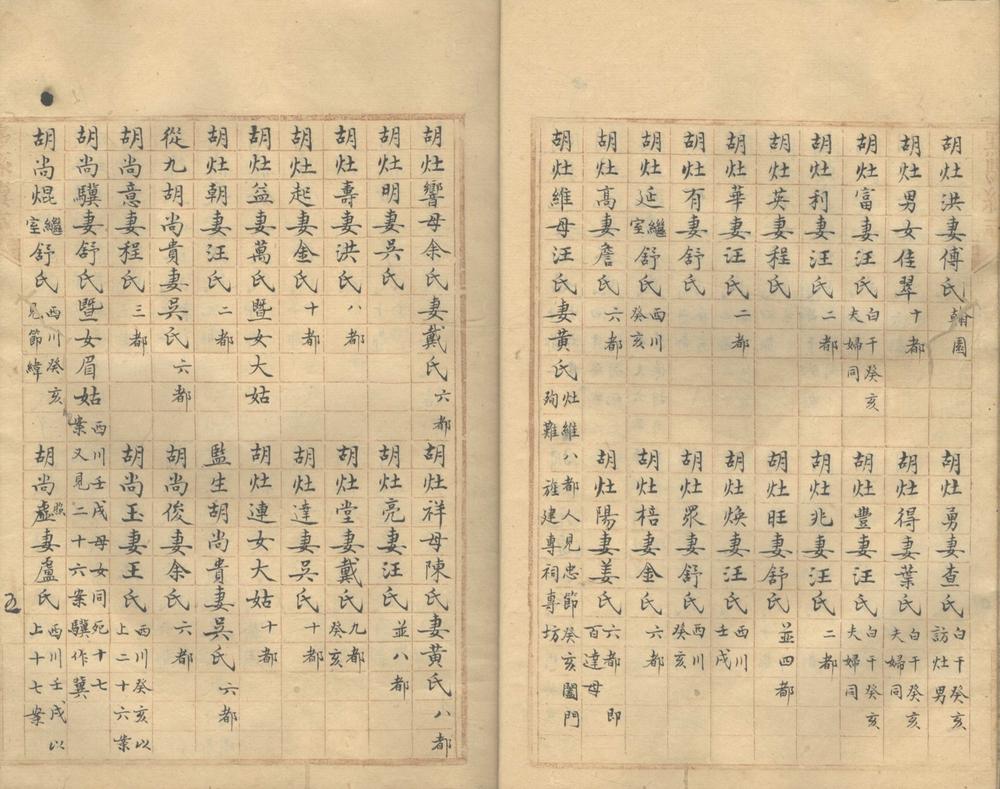 胡灶洪妻傅氏 翰園 胡灶勇妻查氏 白干癸亥訪灶男
胡灶男女佳翠 十都 胡灶得妻葉氏 白干癸亥夫婦同
胡灶富妻汪氏 白干癸亥夫婦同 胡灶豐妻汪氏 白干癸亥夫婦同
胡灶利妻汪氏 二都 胡灶兆妻汪氏 二都
胡灶英妻程氏 胡灶旺妻舒氏 並四都
胡灶華妻汪氏 二都 胡灶煥妻汪氏 西川壬戌
胡灶有妻舒氏 胡灶眾妻舒氏 西川癸亥
胡灶延繼室舒氏 西川癸亥 胡灶棓妻金氏 六都
胡灶高妻詹氏 六都 胡灶陽妻姜氏 六都即百達母
胡灶維母汪氏妻黃氏 灶維八都人見忠節癸亥闔門殉難旌建專祠專坊
胡灶響母余氏妻戴氏 六都 胡灶祥母陳氏妻黃氏 八都
胡灶明妻吳氏 胡灶亮妻汪氏 並八都
胡灶壽妻洪氏 八都 胡灶堂妻戴氏 九都癸亥
胡灶起妻金氏 十都 胡灶達妻吳氏 十都
胡灶益妻萬氏暨女大姑 胡灶連女大姑 十都
胡灶朝妻汪氏 二都 監生胡尚貴妻吳氏 六都
從九胡尚貴妻吳氏 六都 胡尚俊妻余氏 六都
胡尚意妻程氏 三都 胡尚玉妻王氏 西川癸亥以上二十六案
胡尚驥妻舒氏暨女眉姑 西川壬戌母女同死十七案又見二十六案驥作冀
胡尚焜繼室舒氏 西川癸亥見節緯 胡尚盧妻盧氏 西川壬戌以上十七案